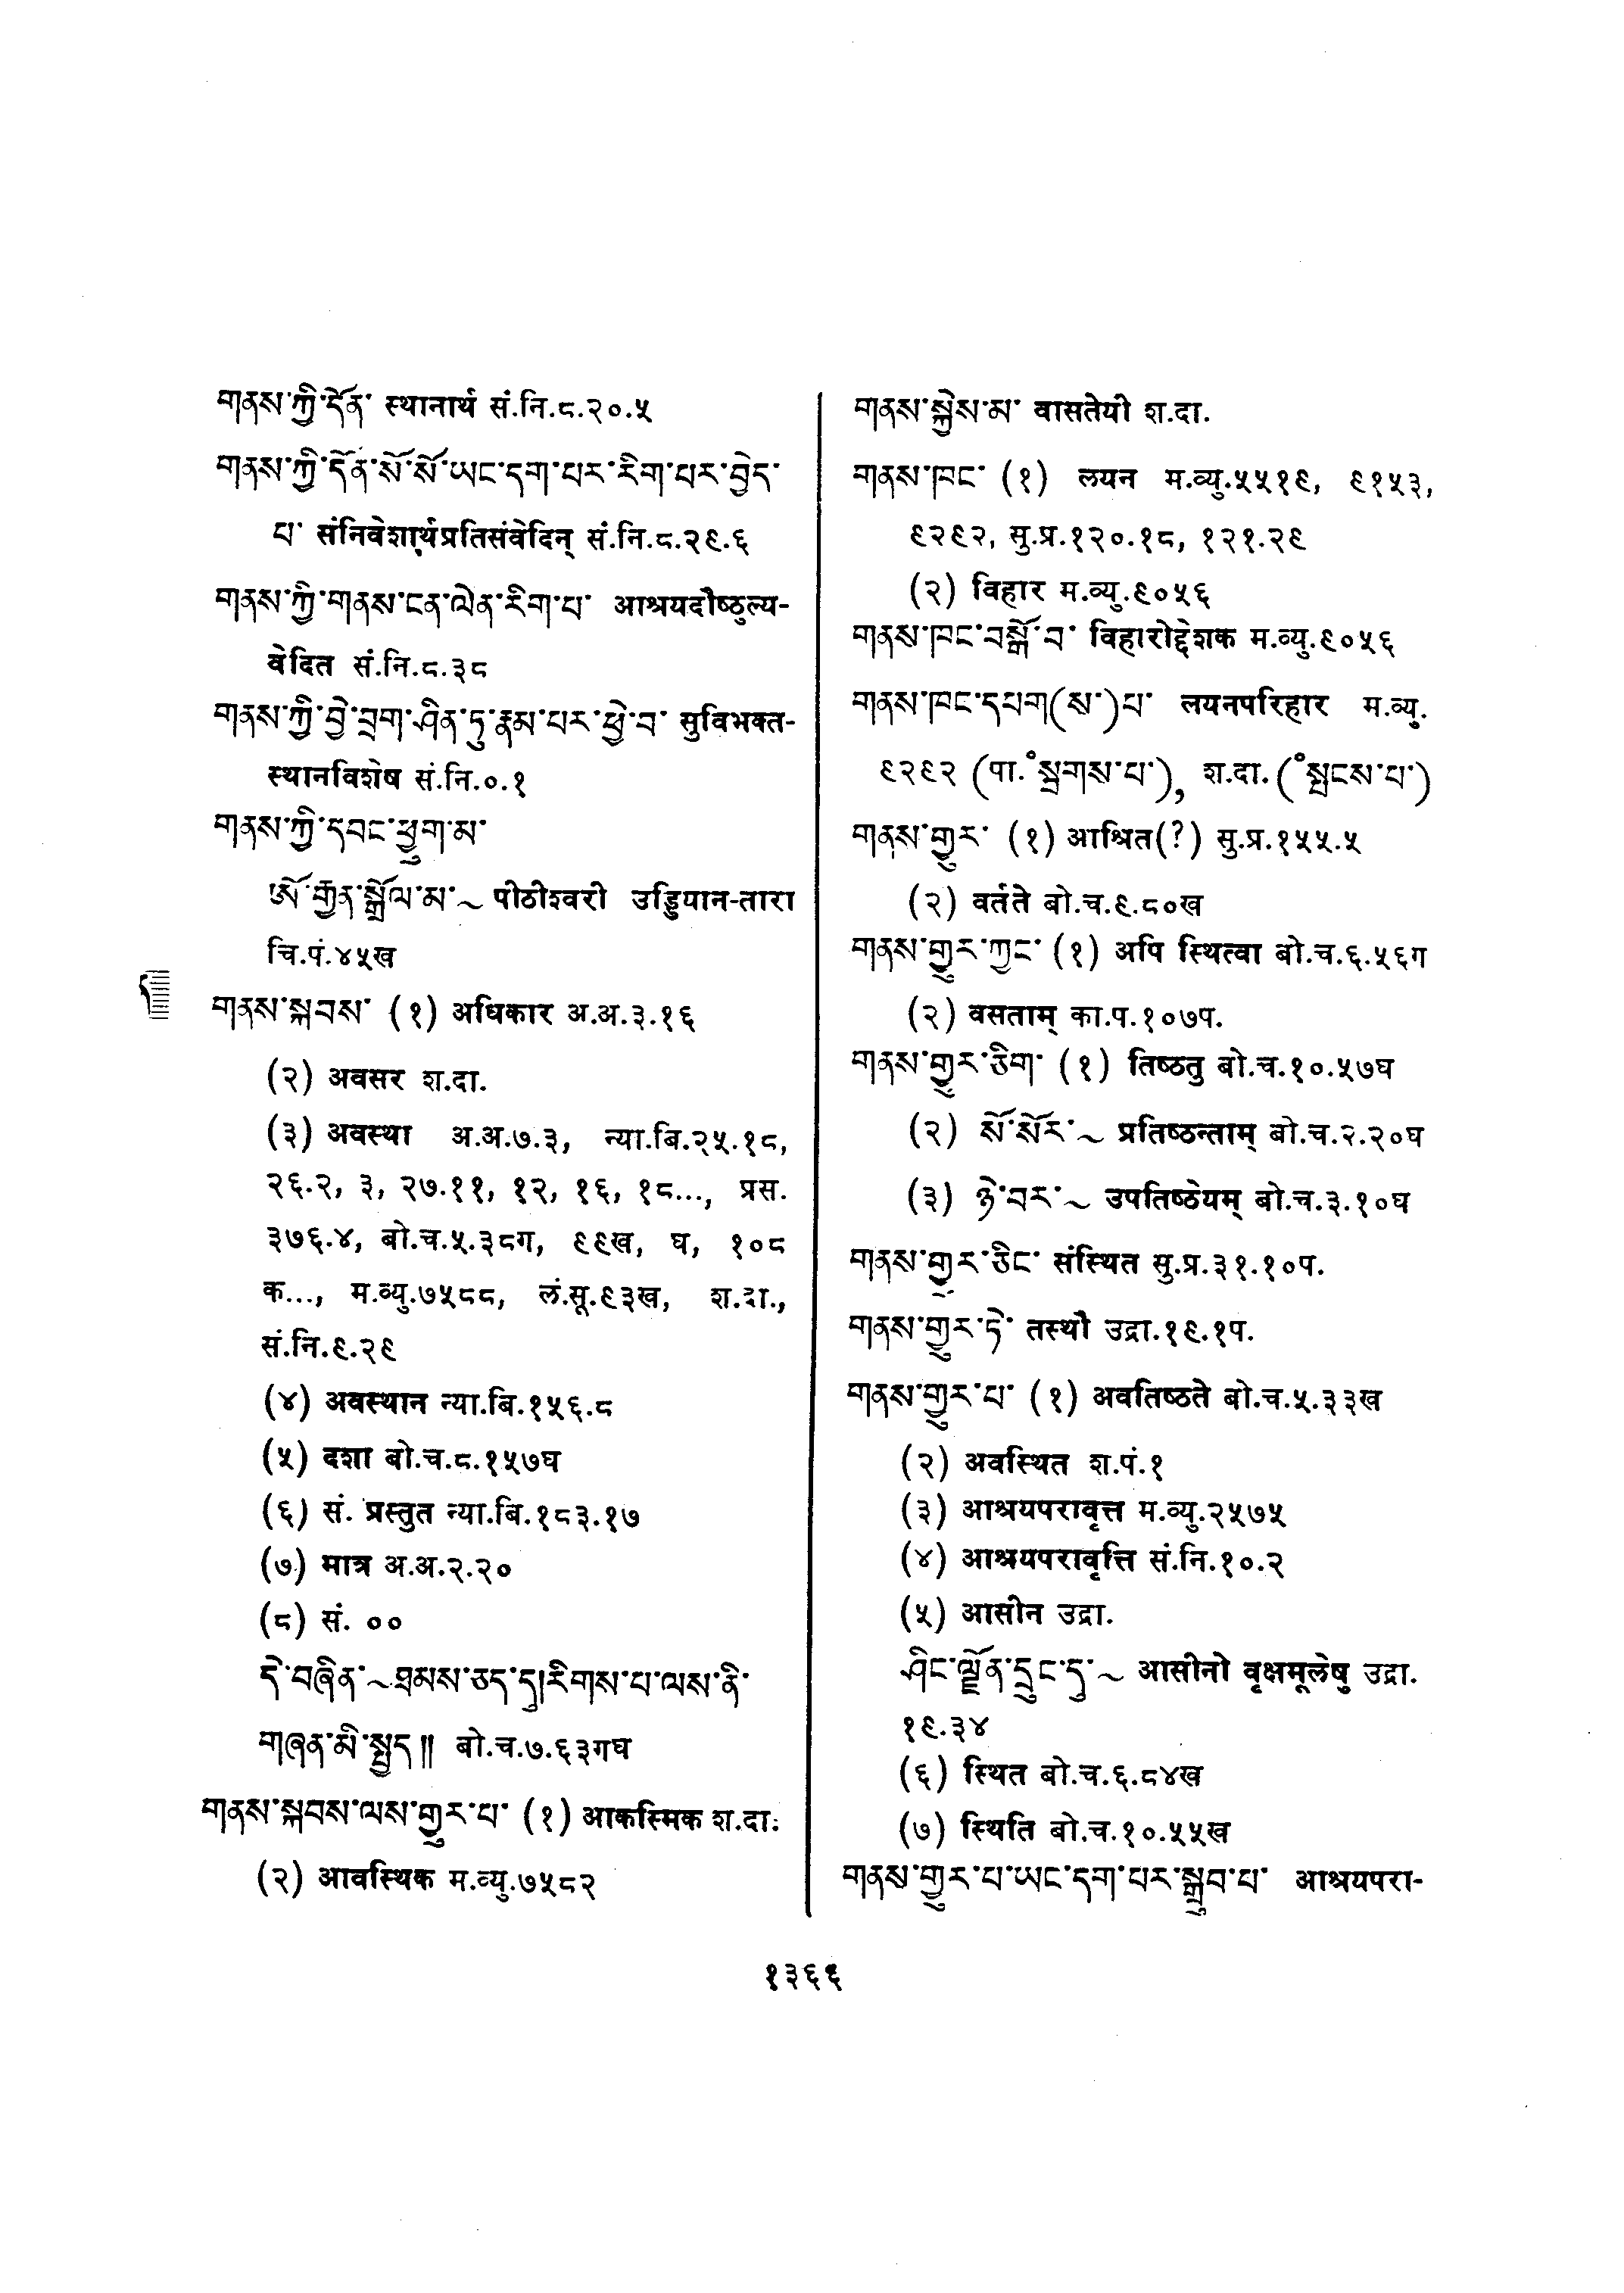 གནས་ཀྱི་དོན་ स्थानार्थ सं.नि.८.२०.५
གནས་ཀྱི་དོན་སོ་སོ་ཡང་དག་པར་རིག་པར་བྱེད་
པ་ संनिवेशार्थप्रतिसंवेदिन् सं.नि.८.२९.६
གནས་ཀྱི་གནས་ངན་ལེན་རིག་པ་ आश्रयदौष्ठुल्य-
वेदित सं.नि.८.३८
གནས་ཀྱི་བྱེ་བྲག་ཤིན་ཏུ་རྣམ་པར་ཕྱེ་བ་ सुविभक्त-
स्थानविशेष सं.नि.०.१
གནས་ཀྱི་དབང་ཕྱུག་མ་
ཨོ་རྒྱན་སྒྲོལ་མ་~ पीठीश्वरी उड्डियान-तारा
चि.पं.४५ख
གནས་སྐབས་ (१) अधिकार अ.अ.३.१६
(२) अवसर श.दा.
(३) अवस्था अ.अ.७.३, न्या.बि.२५.१८,
२६.२, ३, २७.११, १२, १६, १८..., प्रस.
३७६.४, बो.च.५.३८ग, ९९ख, घ, १०८
क..., म.व्यु.७५८८, लं.सू.९३ख, श.दा.,
सं.नि.९.२९
(४) अवस्थान न्या.बि.१५६.८
(५) दशा बो.च.८.१५७घ
(६) सं. प्रस्तुत न्या.बि.१८३.१७
(७) मात्र अ.अ.२.२०
(८) सं. ००
དེ་བཞིན་~ཐམས་ཅད་དུ།རིགས་པ་ལས་ནི་
གཞན་མི་སྤྱད༎ बो.च.७.६३गघ
གནས་སྐབས་ལས་གྱུར་པ་ (१) आकस्मिक श.दा.
(२) आवस्थिक म.व्यु.७५८२
གནས་སྐྱེས་མ་ वासतेयी श.दा.
གནས་ཁང་ (१) लयन म.व्यु.५५१९, ९१५३,
९२९२, सु.प्र.१२०.१८, १२१.२९
(२) विहार म.व्यु.९०५६
གནས་ཁང་བསྒོ་བ་ विहारोद्देशक म.व्यु.९०५६
གནས་ཁང་དཔག(ས་)པ་ लयनपरिहार म.व्यु.
९२९२ (पा.°སྦྲགས་པ་), श.दा.(°སྤངས་པ་)
གནས་གྱུར་ (१) आश्रित(?) सु.प्र.१५५.५
(२) वर्तते बो.च.९.८०ख
གནས་གྱུར་ཀྱང་ (१) अपि स्थित्वा बो.च.६.५६ग
(२) वसताम् का.प.१०७प.
གནས་གྱུར་ཅིག་ (१) तिष्ठतु बो.च.१०.५७घ
(२) སོ་སོར་~ प्रतिष्ठन्ताम् बो.च.२.२०घ
(३) ཉེ་བར་~ उपतिष्ठेयम् बो.च.३.१०घ
གནས་གྱུར་ཅིང་ संस्थित सु.प्र.३१.१०प.
གནས་གྱུར་ཏེ་ तस्थौ उद्रा.१९.१प.
གནས་གྱུར་པ་ (१) अवतिष्ठते बो.च.५.३३ख
(२) अवस्थित श.पं.१
(३) आश्रयपरावृत्त म.व्यु.२५७५
(४) आश्रयपरावृत्ति सं.नि.१०.२
(५) आसीन उद्रा.
ཤིང་ལྗོན་དྲུང་དུ་~ आसीनो वृक्षमूलेषु उद्रा.
१९.३४
(६) स्थित बो.च.६.८४ख
(७) स्थिति बो.च.१०.५५ख
གནས་གྱུར་པ་ཡང་དག་པར་སྒྲུབ་པ་ आश्रयपरा-
१३६६